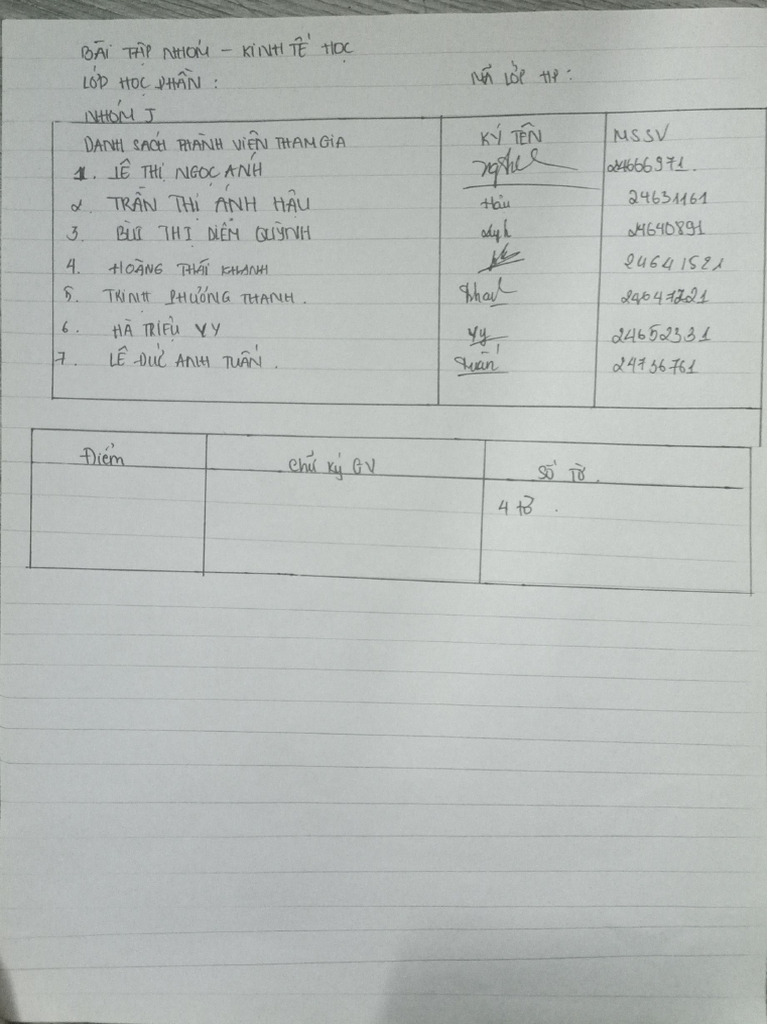 BÀI TẬP NHÓM - KINH TẾ HỌC
LỚP HỌC PHẦN : MÃ LỚP HP :
NHÓM J
DANH SÁCH THÀNH VIÊN THAM GIA KÝ TÊN MSSV
1. LÊ THỊ NGỌC ÁNH 24666971.
2. TRẦN THỊ ÁNH HẬU Hậu 24631161
3. BÙI THỊ DIỄM QUỲNH 24640891
4. HOÀNG THÁI KHANH 24641521
5. TRỊNH PHƯƠNG THANH. 24647221
6. HÀ TRIỆU VY Vy 24652331
7. LÊ ĐỨC ANH TUẤN. Tuấn 24736761
Điểm Chữ ký GV Số Tờ.
4 tờ.